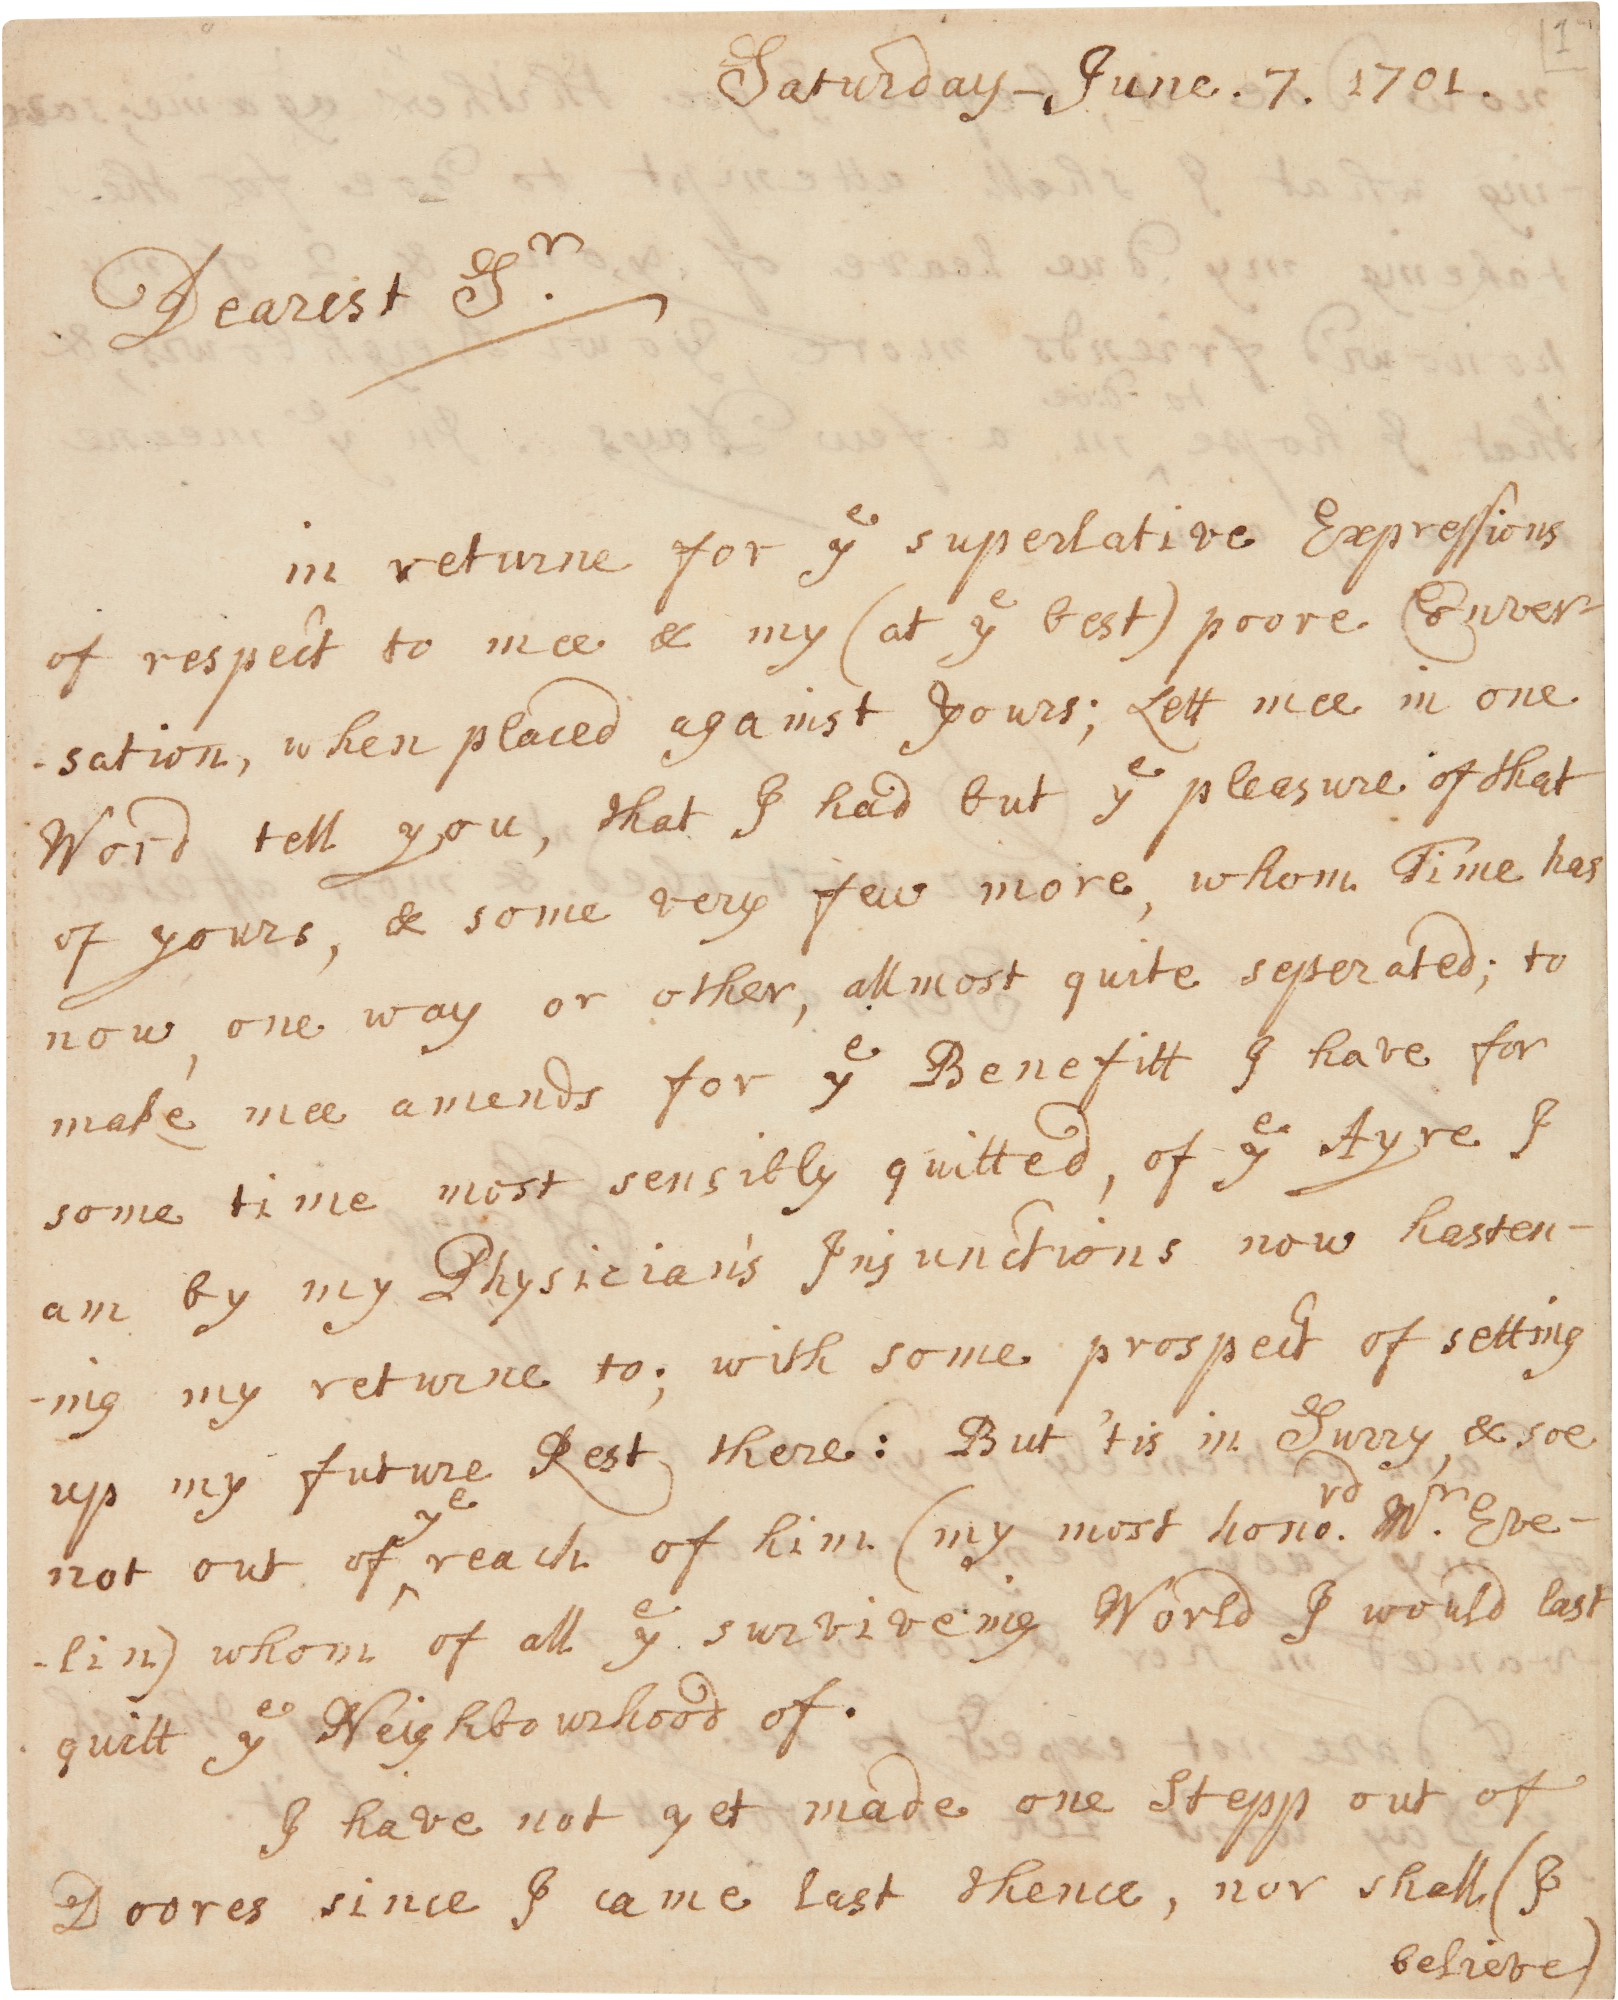 1
Saturday - June. 7. 1701.
Dearest Sr.
in returne for ye superlative Expressions
of respect to mee & my (at ye best) poore Conver-
-sation, when placed against yours; Lett mee in one
Word tell you, that I had but ye pleasure of that
of yours, & some very few more, whom Time has
now, one way or other, allmost quite seperated; to
make mee amends for ye Benefitt I have for
some time most sensibly quitted, of ye Ayre I
am by my Physician's Injunctions now hasten-
-ing my returne to; with some prospect of setting
up my future Rest there: But 'tis in Surry, & soe
not out of ^ye reach of him (my most honord. Mr. Eve-
-lin) whom of all ye surviveing World I would last
quitt ye Neighbourhood of.
I have not yet made one Stepp out of
Doores since I came last thence, nor shall (I
believe)